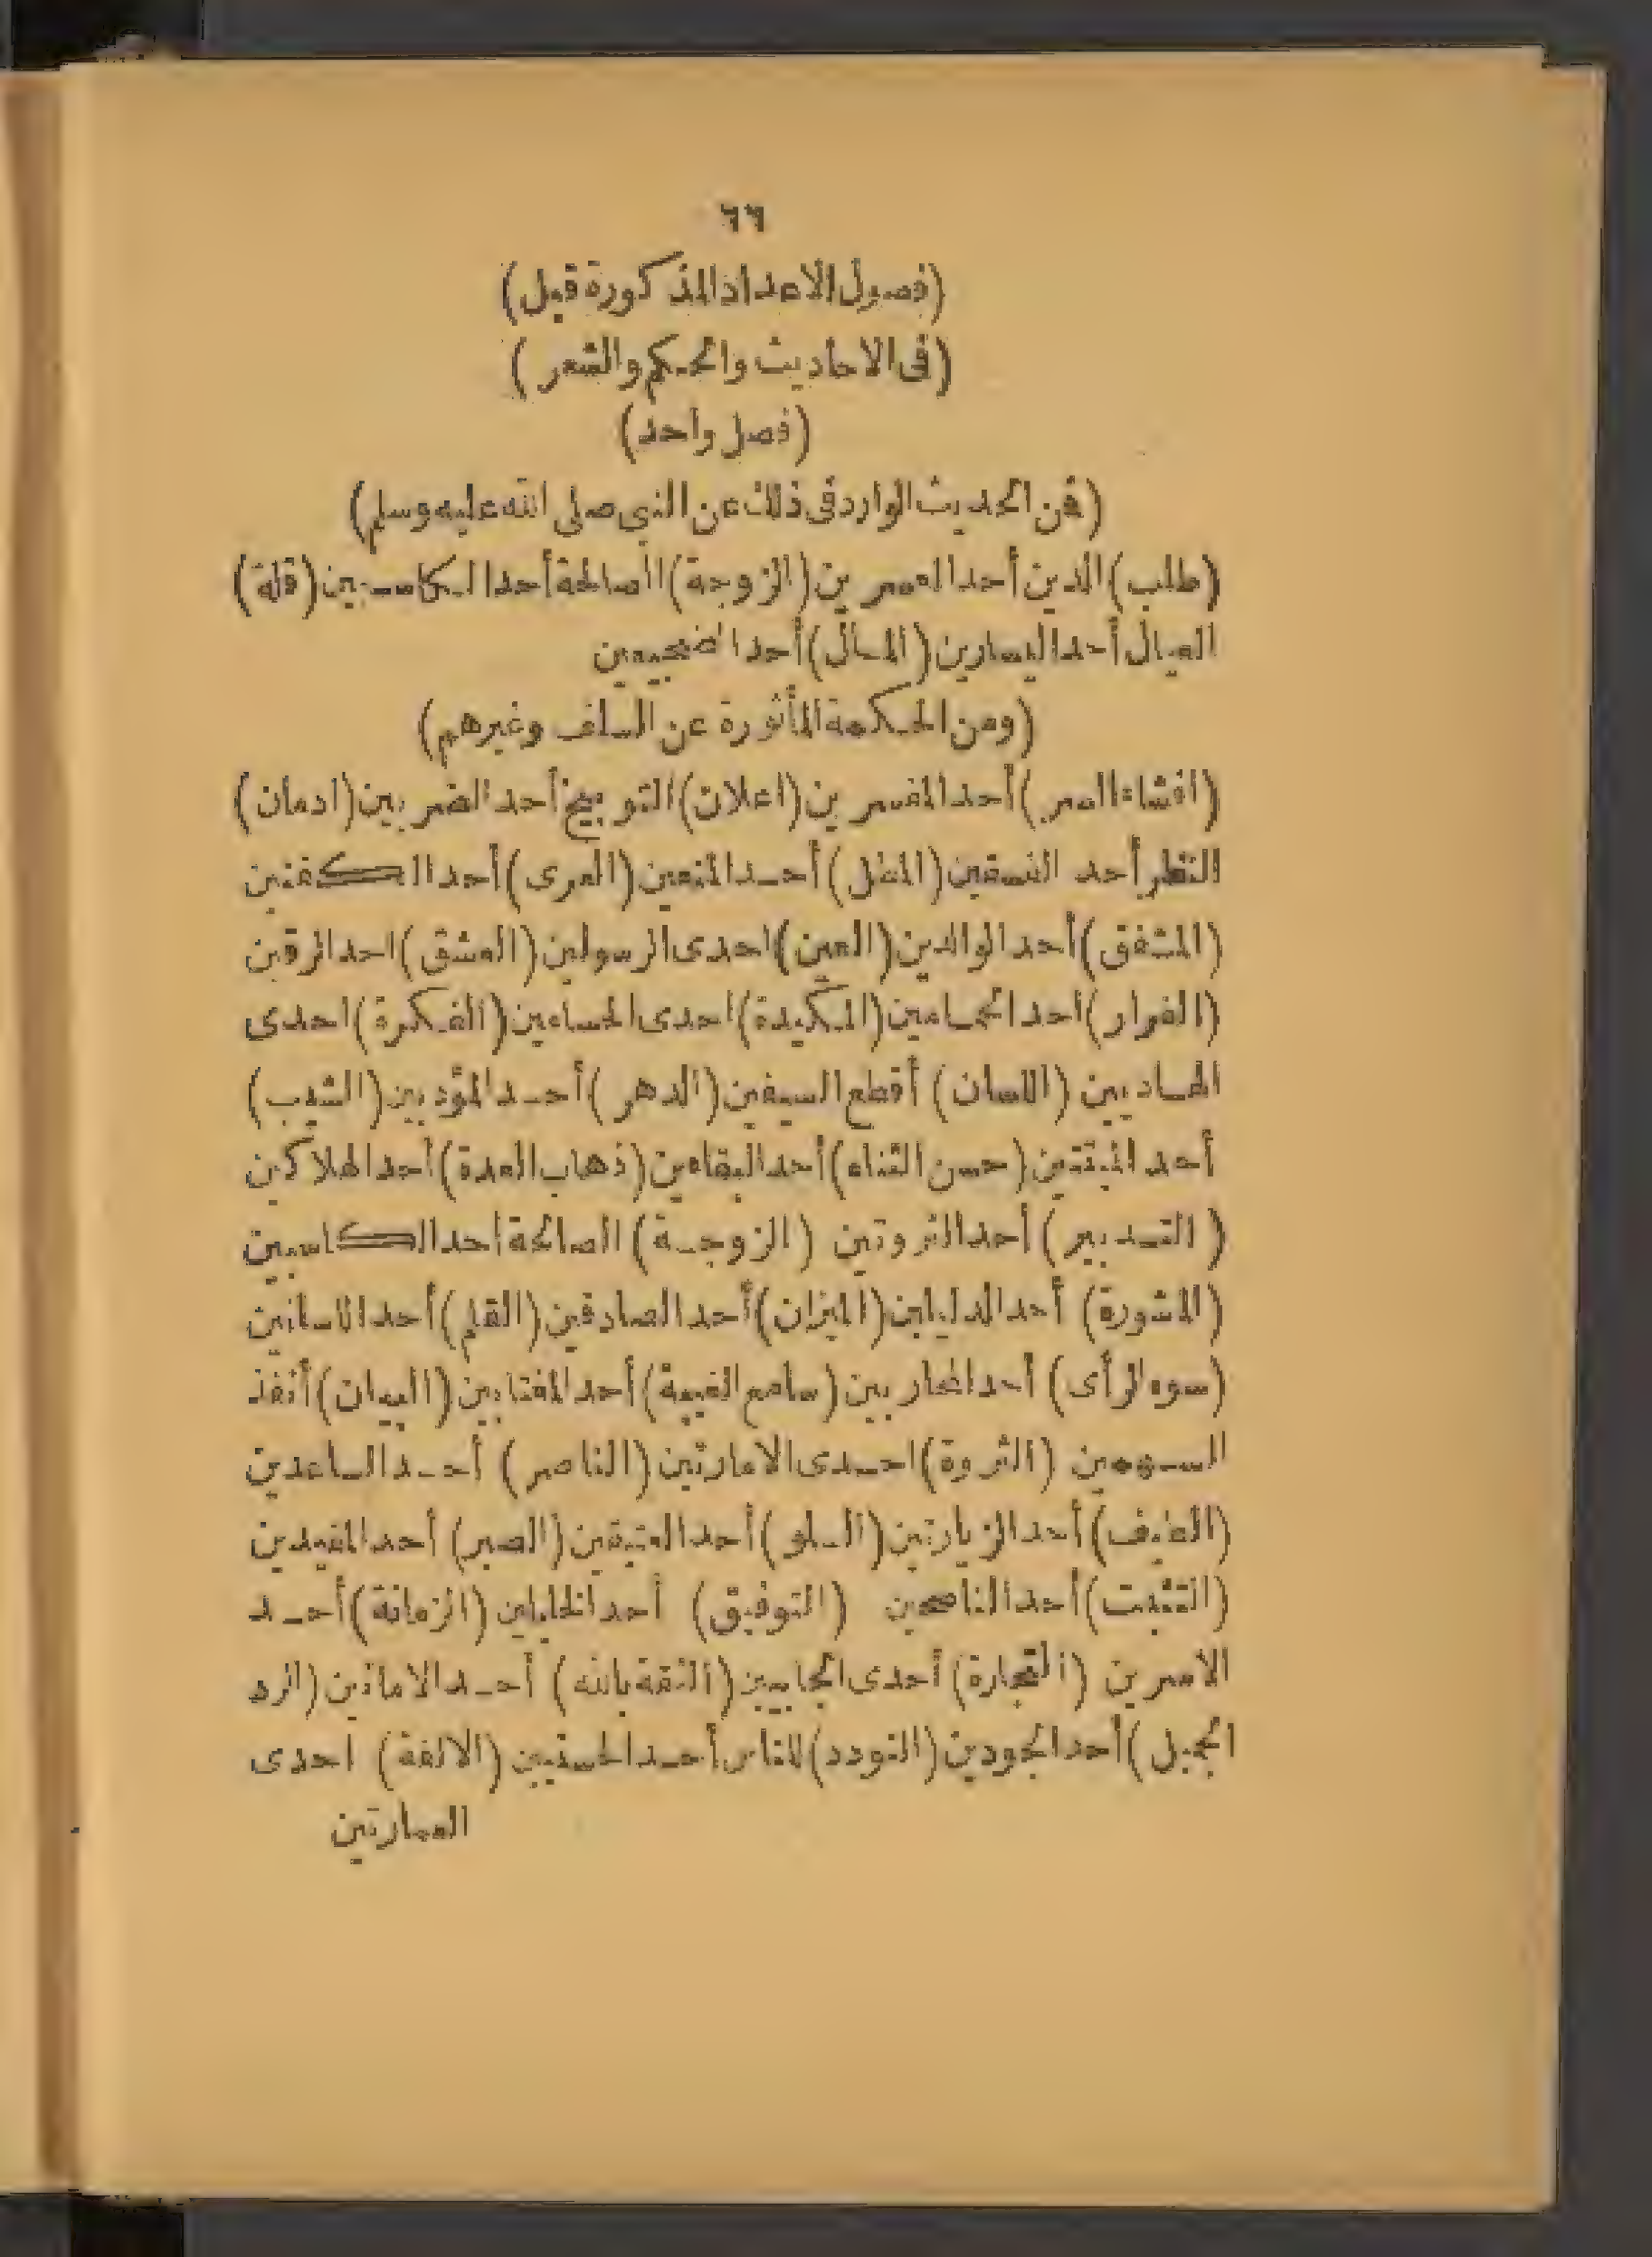 ٦٦
(فصول الاعداد المذكورة قبل)
(فى الاحاديث والحكم والشعر)
(فصل واحد)
(فن الحديث الوارد فى ذلك عن النبى صلى الله عليه وسلم)
(طلب) الدين أحد العسرين (الزوجة) الصالحة أحد الكاسبين (قلة)
العيال أحد اليسارين (المال) أحد الضجيعين
(ومن الحكمة المأثورة عن السلف وغيرهم)
(افشاء السر) أحد المفسرين (اعلان) التوبيخ أحد الضربين (ادمان)
النظر أحد الفسقين (المطل) أحد المنعين (العرى) أحد الكفنين
(المشفق) أحد الوالدين (العين) احدى الرسولين (العشق) احد الرقين
(الفرار) أحد الحمامين (المكيدة) احدى الحسامين (الفكرة) احدى
الهاديين (اللسان) أقطع السيفين (الدهر) أحد المؤدبين (الشيب)
أحد الميتتين (حسن الثناء) أحد البقاءين (ذهاب العدة) أحد الهلاكين
(التدبير) أحد الثروتين (الزوجة) الصالحة أحد الكاسبين
(المشورة) أحد الدليلين (الميزان) أحد الصادقين (القلم) أحد اللسانين
(سوء الرأى) أحد المحاربين (سامع الغيبة) أحد المغتابين (البيان) أنفذ
السهمين (الثروة) احدى الامارتين (الناصر) أحد الساعدين
(الطيف) أحد الزيارتين (السلو) أحد العتيقين (الصبر) أحد المفيدين
(التثبت) أحد الناصحين (التوفيق) أحد الخليلين (الزمانة) أحد
الاسرين (التجارة) أحدى الجابيين (الثقة بالله) أحد الامانين (الرد
الجميل) أحد الجودين (التودد) للناس أحد الحسنيين (الالفة) احدى
العمارتين